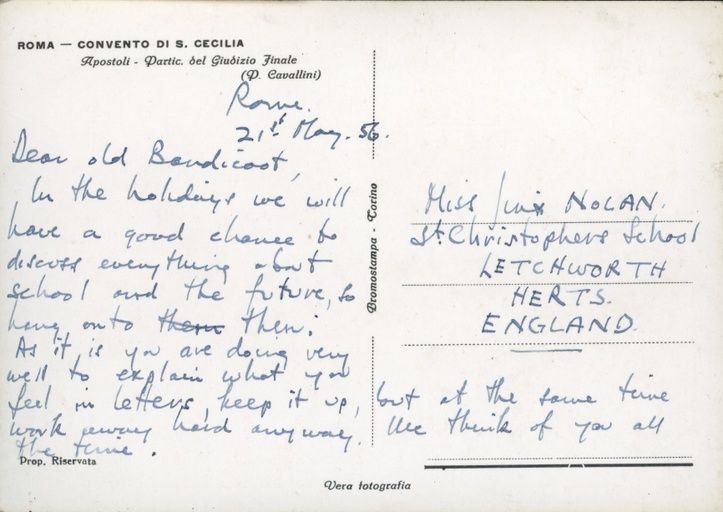 ROMA — CONVENTO DI S. CECILIA
Apostoli - Partic. del Giudizio Finale
(P. Cavallini)
Rome.
21st May. 56.
Dear old Bandicoot,
In the holidays we will
have a good chance to
discuss everything about
school and the future, so
hang onto them then:
As it is you are doing very
well to explain what you
feel in letters, keep it up, but at the same time
work away hard anyway. We think of you all
the time.
Prop. Riservata
Bromostampa - Torino
Miss Jinx NOLAN.
St. Christophers School
LETCHWORTH
HERTS.
ENGLAND.
Vera fotografia